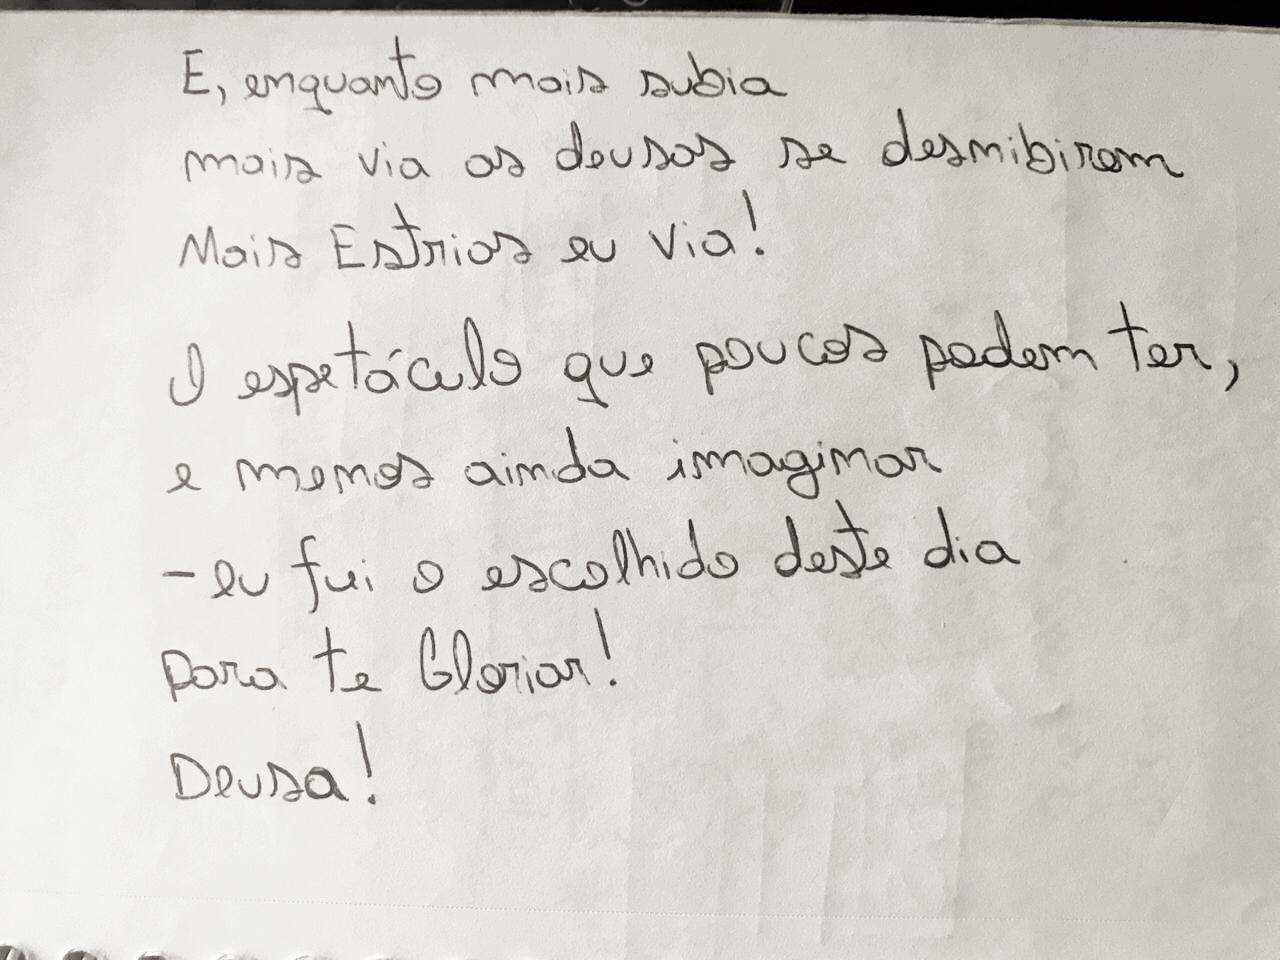 E, enquanto mais subia
mais via as deusas se desnibirem
Mais Estrias eu via!
O espetáculo que poucos podem ter,
e menos ainda imaginar
- eu fui o escolhido deste dia
para te Gloriar!
Deusa!